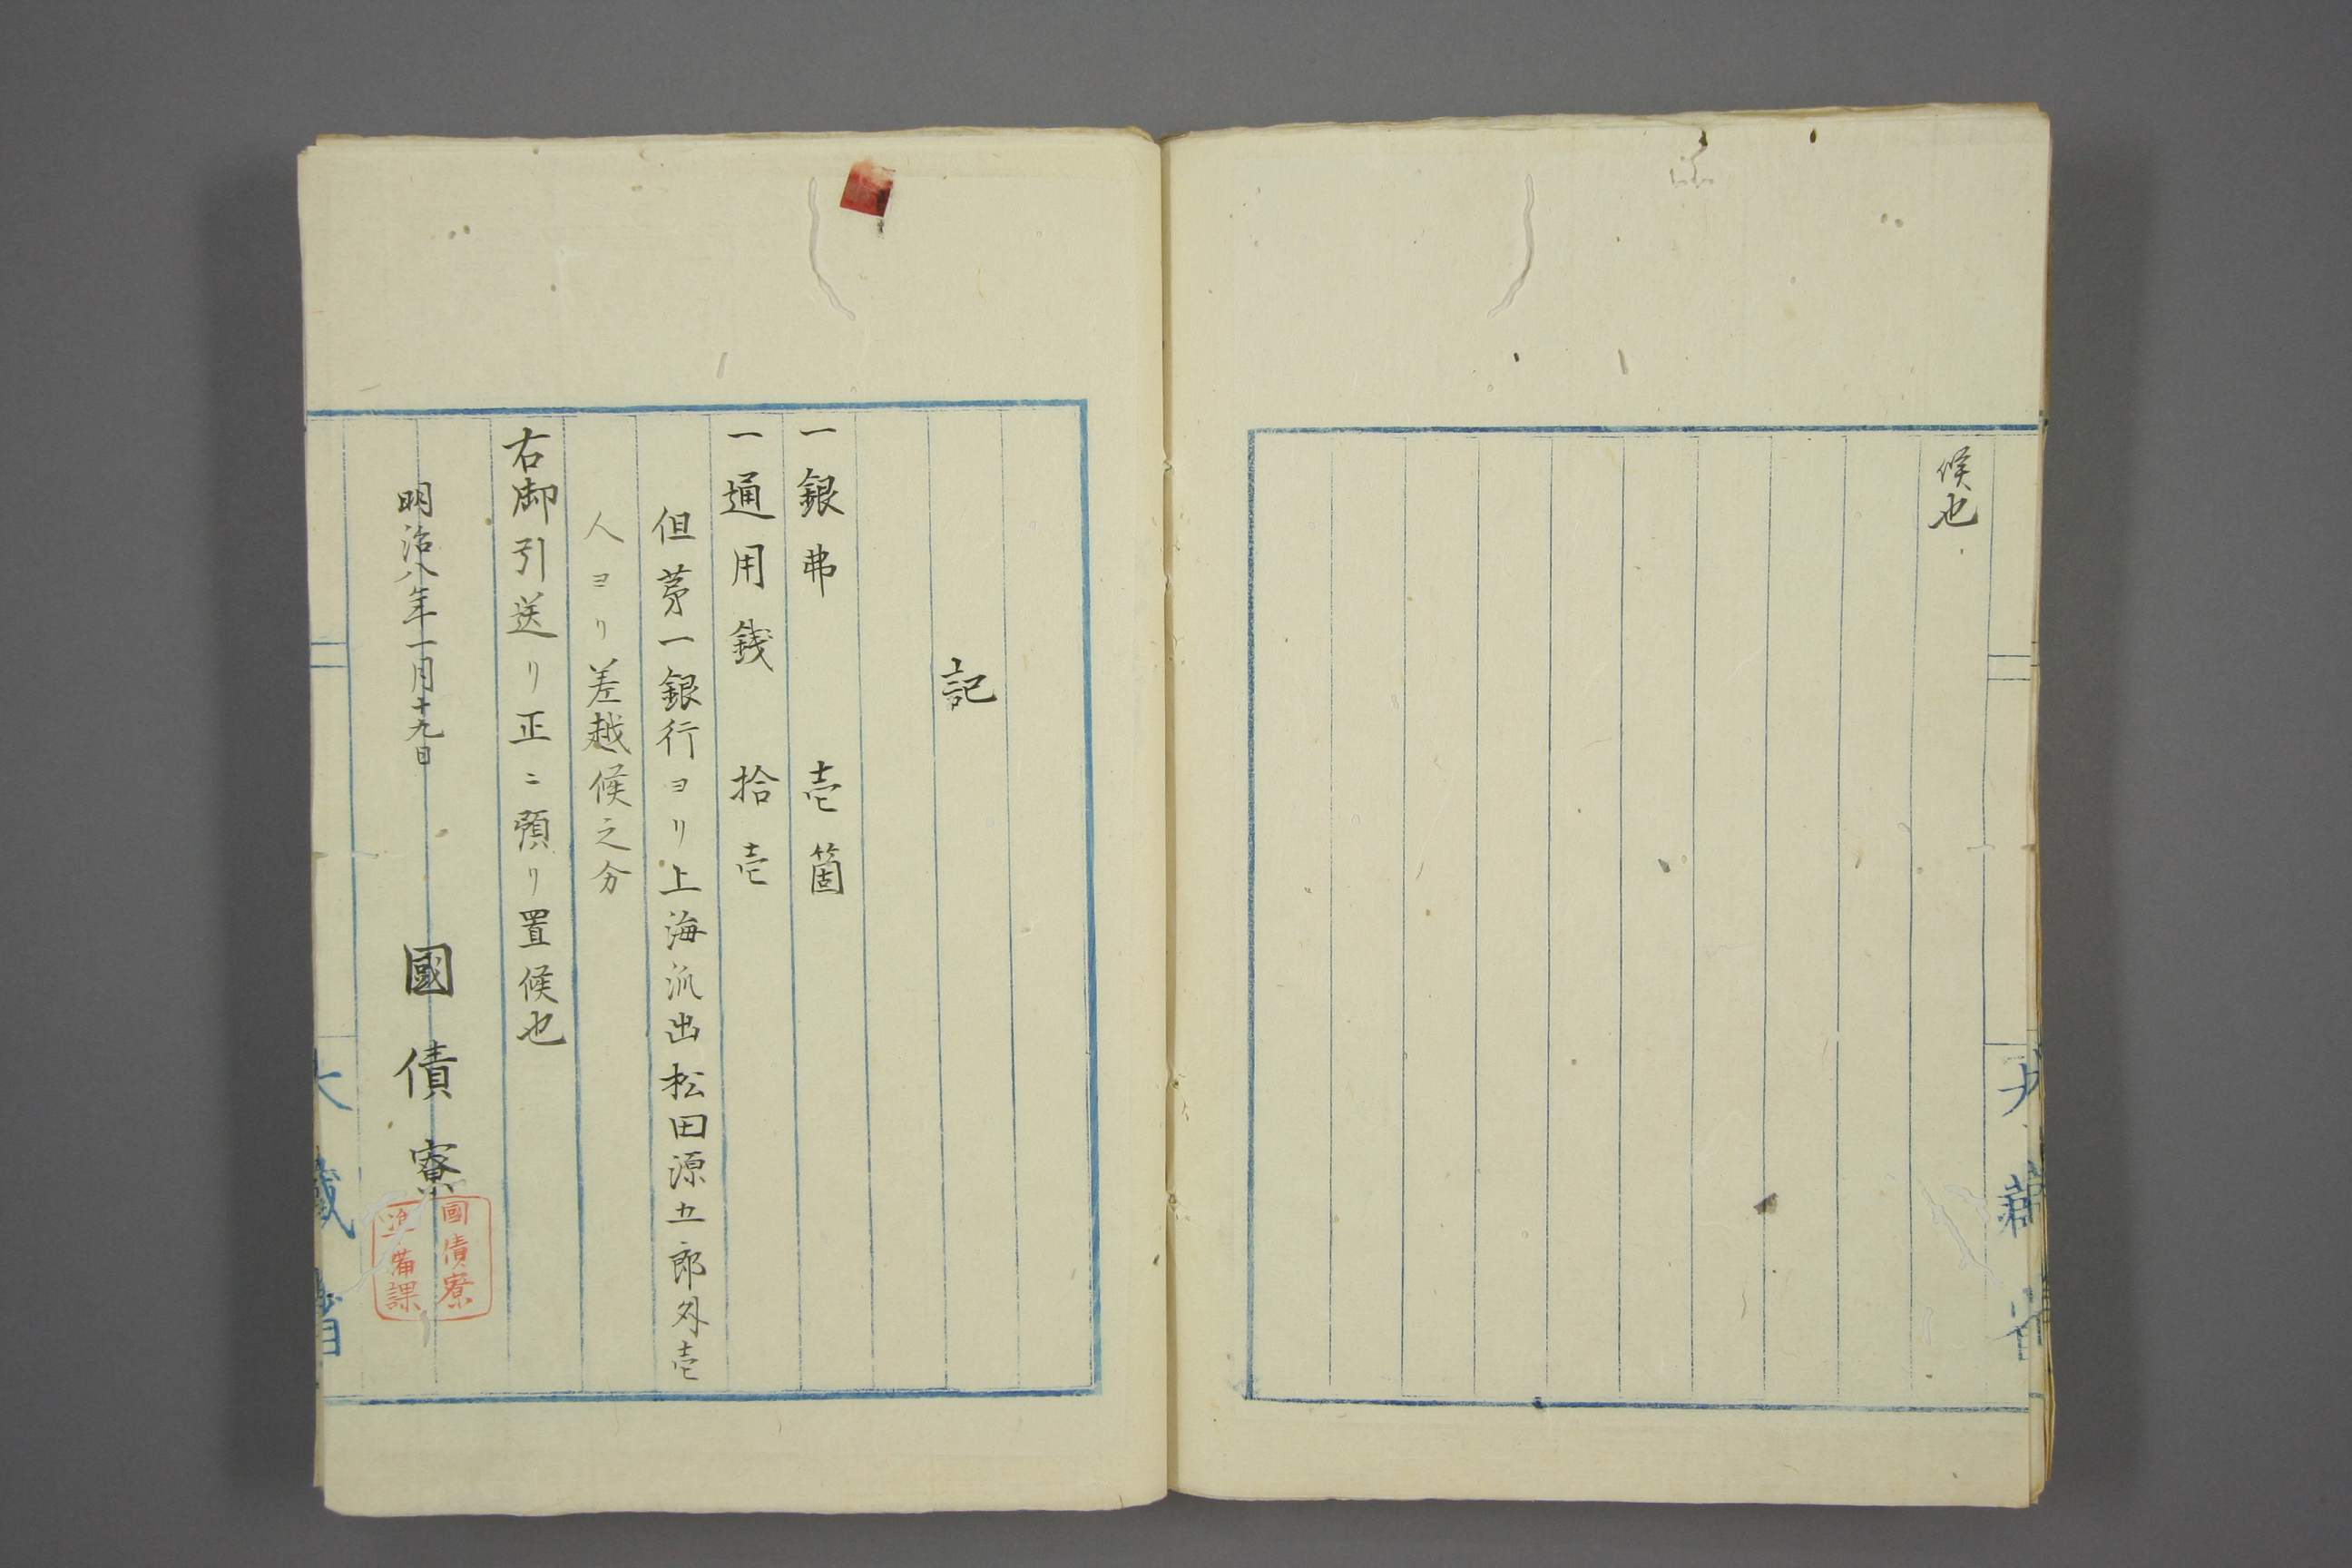 候也
大藏省
記
一銀弗　壱箇
一通用錢　拾壱
但茅一銀行ヨリ上海派出松田源五郎外壱
人ヨリ差越候之分
右御引送リ正ニ預リ置候也
明治八年一月十九日
國債寮
國債寮
準備課
大藏省